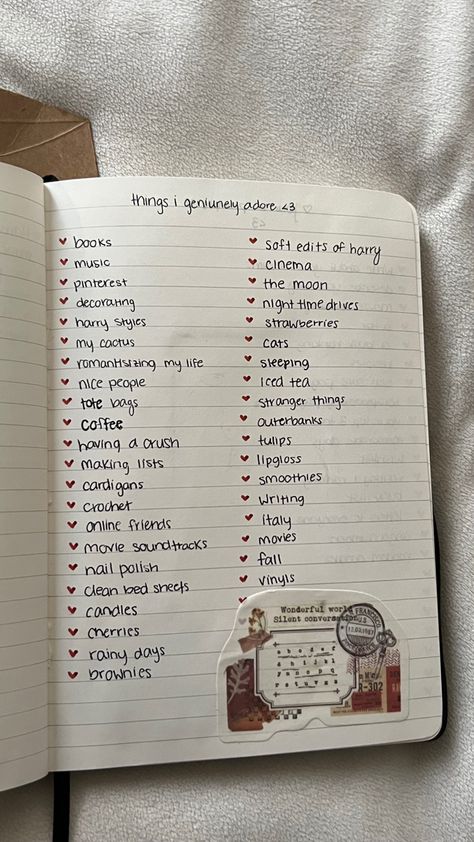 things i geniunely adore <3
books
music
pinterest
decorating
harry styles
my cactus
romantisizing my life
nice people
tote bags
coffee
having a crush
making lists
cardigans
crochet
online friends
movie soundtracks
nail polish
clean bed sheets
candles
cherries
rainy days
brownies
soft edits of harry
cinema
the moon
night time drives
strawberries
cats
sleeping
iced tea
stranger things
outerbanks
tulips
lipgloss
smoothies
writing
italy
movies
fall
vinyls
Wonderful world
Silent conversation
R-302